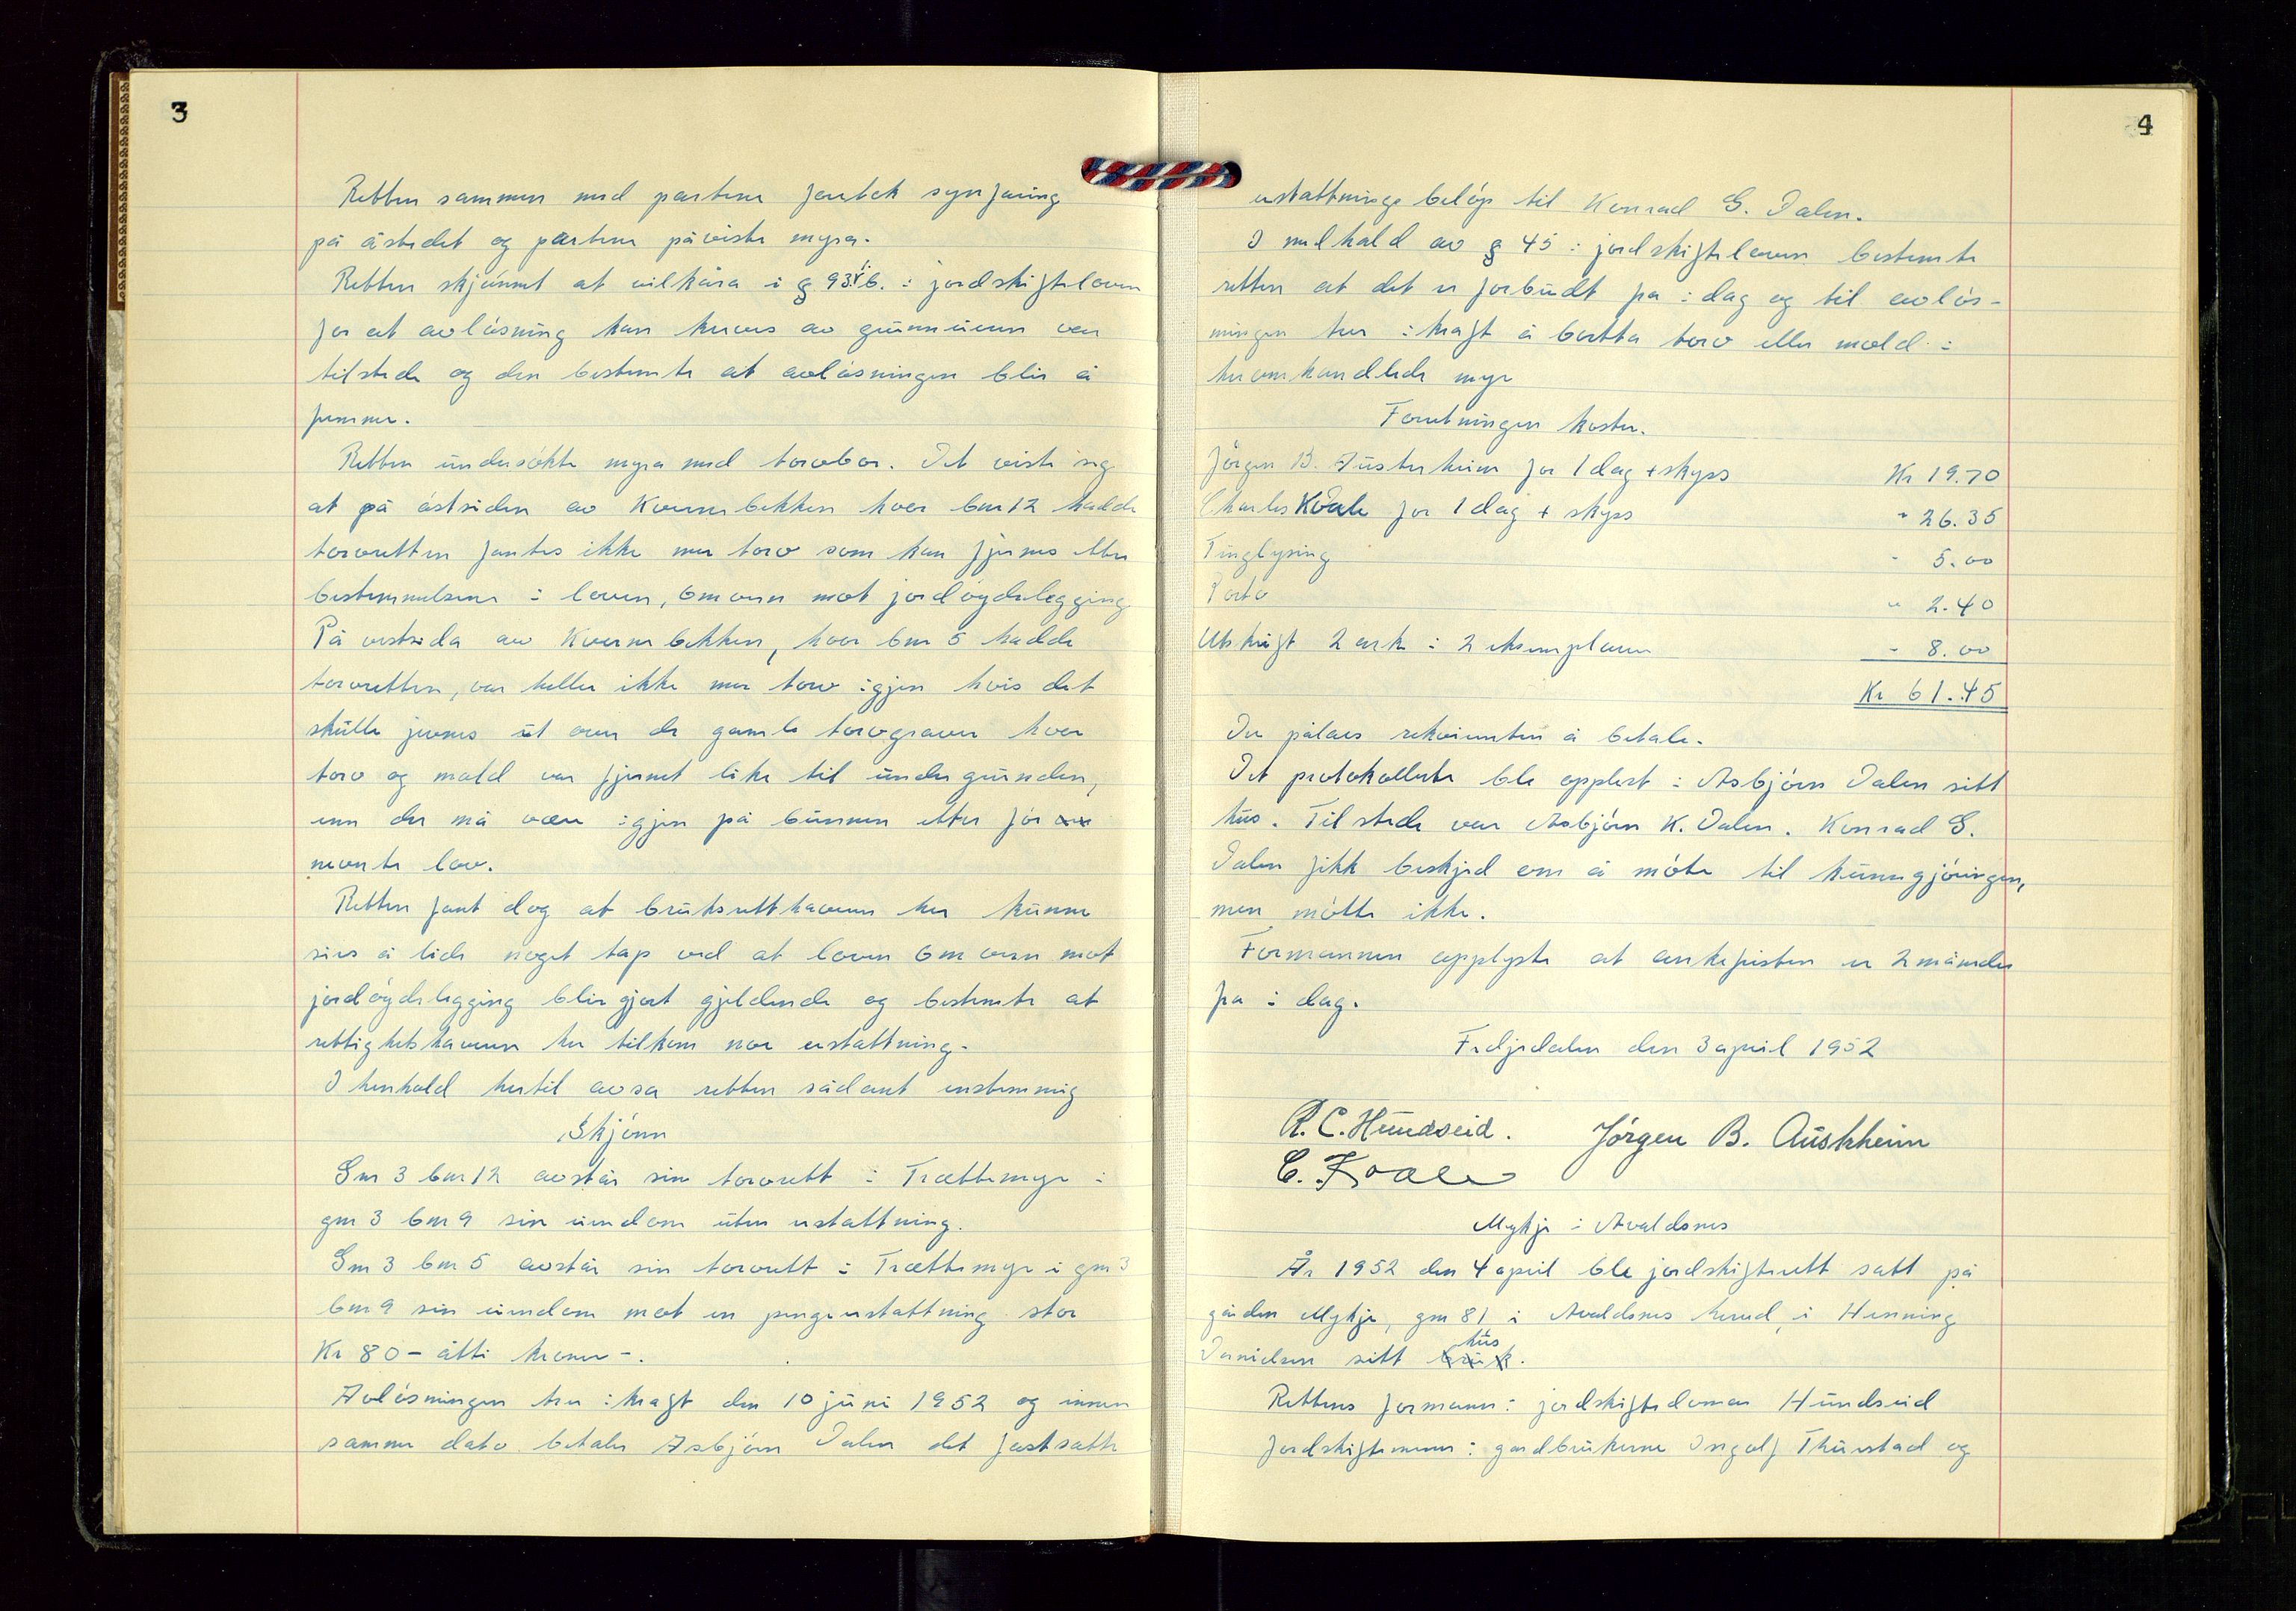 3
Retten sammen med partene foretok synfaring
på åstedet og partene påviste myra.
Retten skjønnet at vilkåra i § 93 b. i jordskifteloven
for at avløsning kan kreves av grunneieren var
tilstede og den bestemte at avløsningen blir å
fremme.
Retten undersøkte myra med torvbor. Det viste seg
at på østsiden av Kvernebekken hvor bnr 12 hadde
torvretten fantes ikke mer torv som kan fjernes etter
bestemmelsene i loven, om vern mot jordøydelegging
På vestsida av Kvernebekken, hvor bnr 5 hadde
torvretten, var heller ikke mer torv igjen hvis det
skulle jevnes ut over de gamle torvgraver hvor
torv og mold var fjernet like til undergrunden,
enn der må være igjen på bunnen etter før
nevnte lov.
Retten fant dog at bruksretthaveren her kunne
sies å lide noget tap ved at loven om vern mot
jordøydelegging blir gjort gjeldende og bestemte at
rettighetshaveren her tilkom noe erstattning.
I henhold hertil avsa retten sådant enstemmig
Skjønn
Gnr 3 bnr 12 avstår sin torvrett i Trættemyr i
gnr 3 bnr 9 sin eiendom uten erstattning.
Gnr 3 bnr 5 avstår sin torvrett i Trættemyr i gnr 3
bnr 9 sin eiendom mot en pengeerstattning stor
Kr 80 - åtti kroner -.
Avløsningen trer i kraft den 10 juni 1952 og innen
samme dato betaler Asbjørn Dalen det fastsatte
4
erstattnings beløp til Konrad G. Dalen.
I medhald av § 45 i jordskifteloven bestemte
retten at det er forbudt fra i dag og til avløs-
ningen trer i kraft å bortta torv eller mold i
heromhandlede myr
Forretningen koster.
Jørgen B. Austerheim for 1 dag + skyss Kr 19.70
Charles Kvale for 1 dag + skyss " 26.35
Tinglysing " 5.00
Porto " 2.40
Utskrift 2 ark i 2 eksemplarer " 8.00
Kr 61.45
Der pålaes rekvirenten å betale.
Det protokollerte ble opplest i Asbjørn Dalen sitt
hus. Tilstede var Asbjørn K. Dalen. Konrad G.
Dalen fikk beskjed om å møte til kunngjøringen,
men møtte ikke.
Formannen opplyste at ankefristen er 2 måneder
fra i dag.
Fedjedalen den 3 april 1952
R. C. Hundseid. Jørgen B. Austrheim
C. Kvale
Mykje i Avaldsnes
År 1952 den 4 april ble jordskifterett satt på
gården Mykje, gnr 81 i Avaldsnes herred, i Henning
Danielsen sitt bruk hus.
Rettens formann: jordskiftedomar Hundseid
Jordskiftemenn: gardbrukerne Ingolf Thuestad og